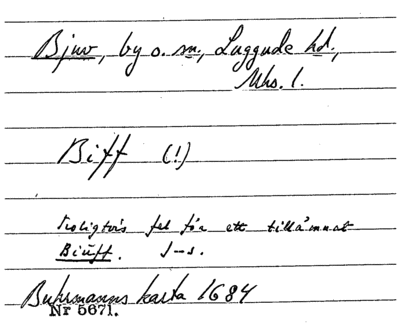 Bjuv, by o. sn, Luggude hd,
Mhs. l.
Biff (!)
Troligtvis fel för ett tillämnat
Biuff. J-s.
Buhrmanns karta 1684
Nr 5671.